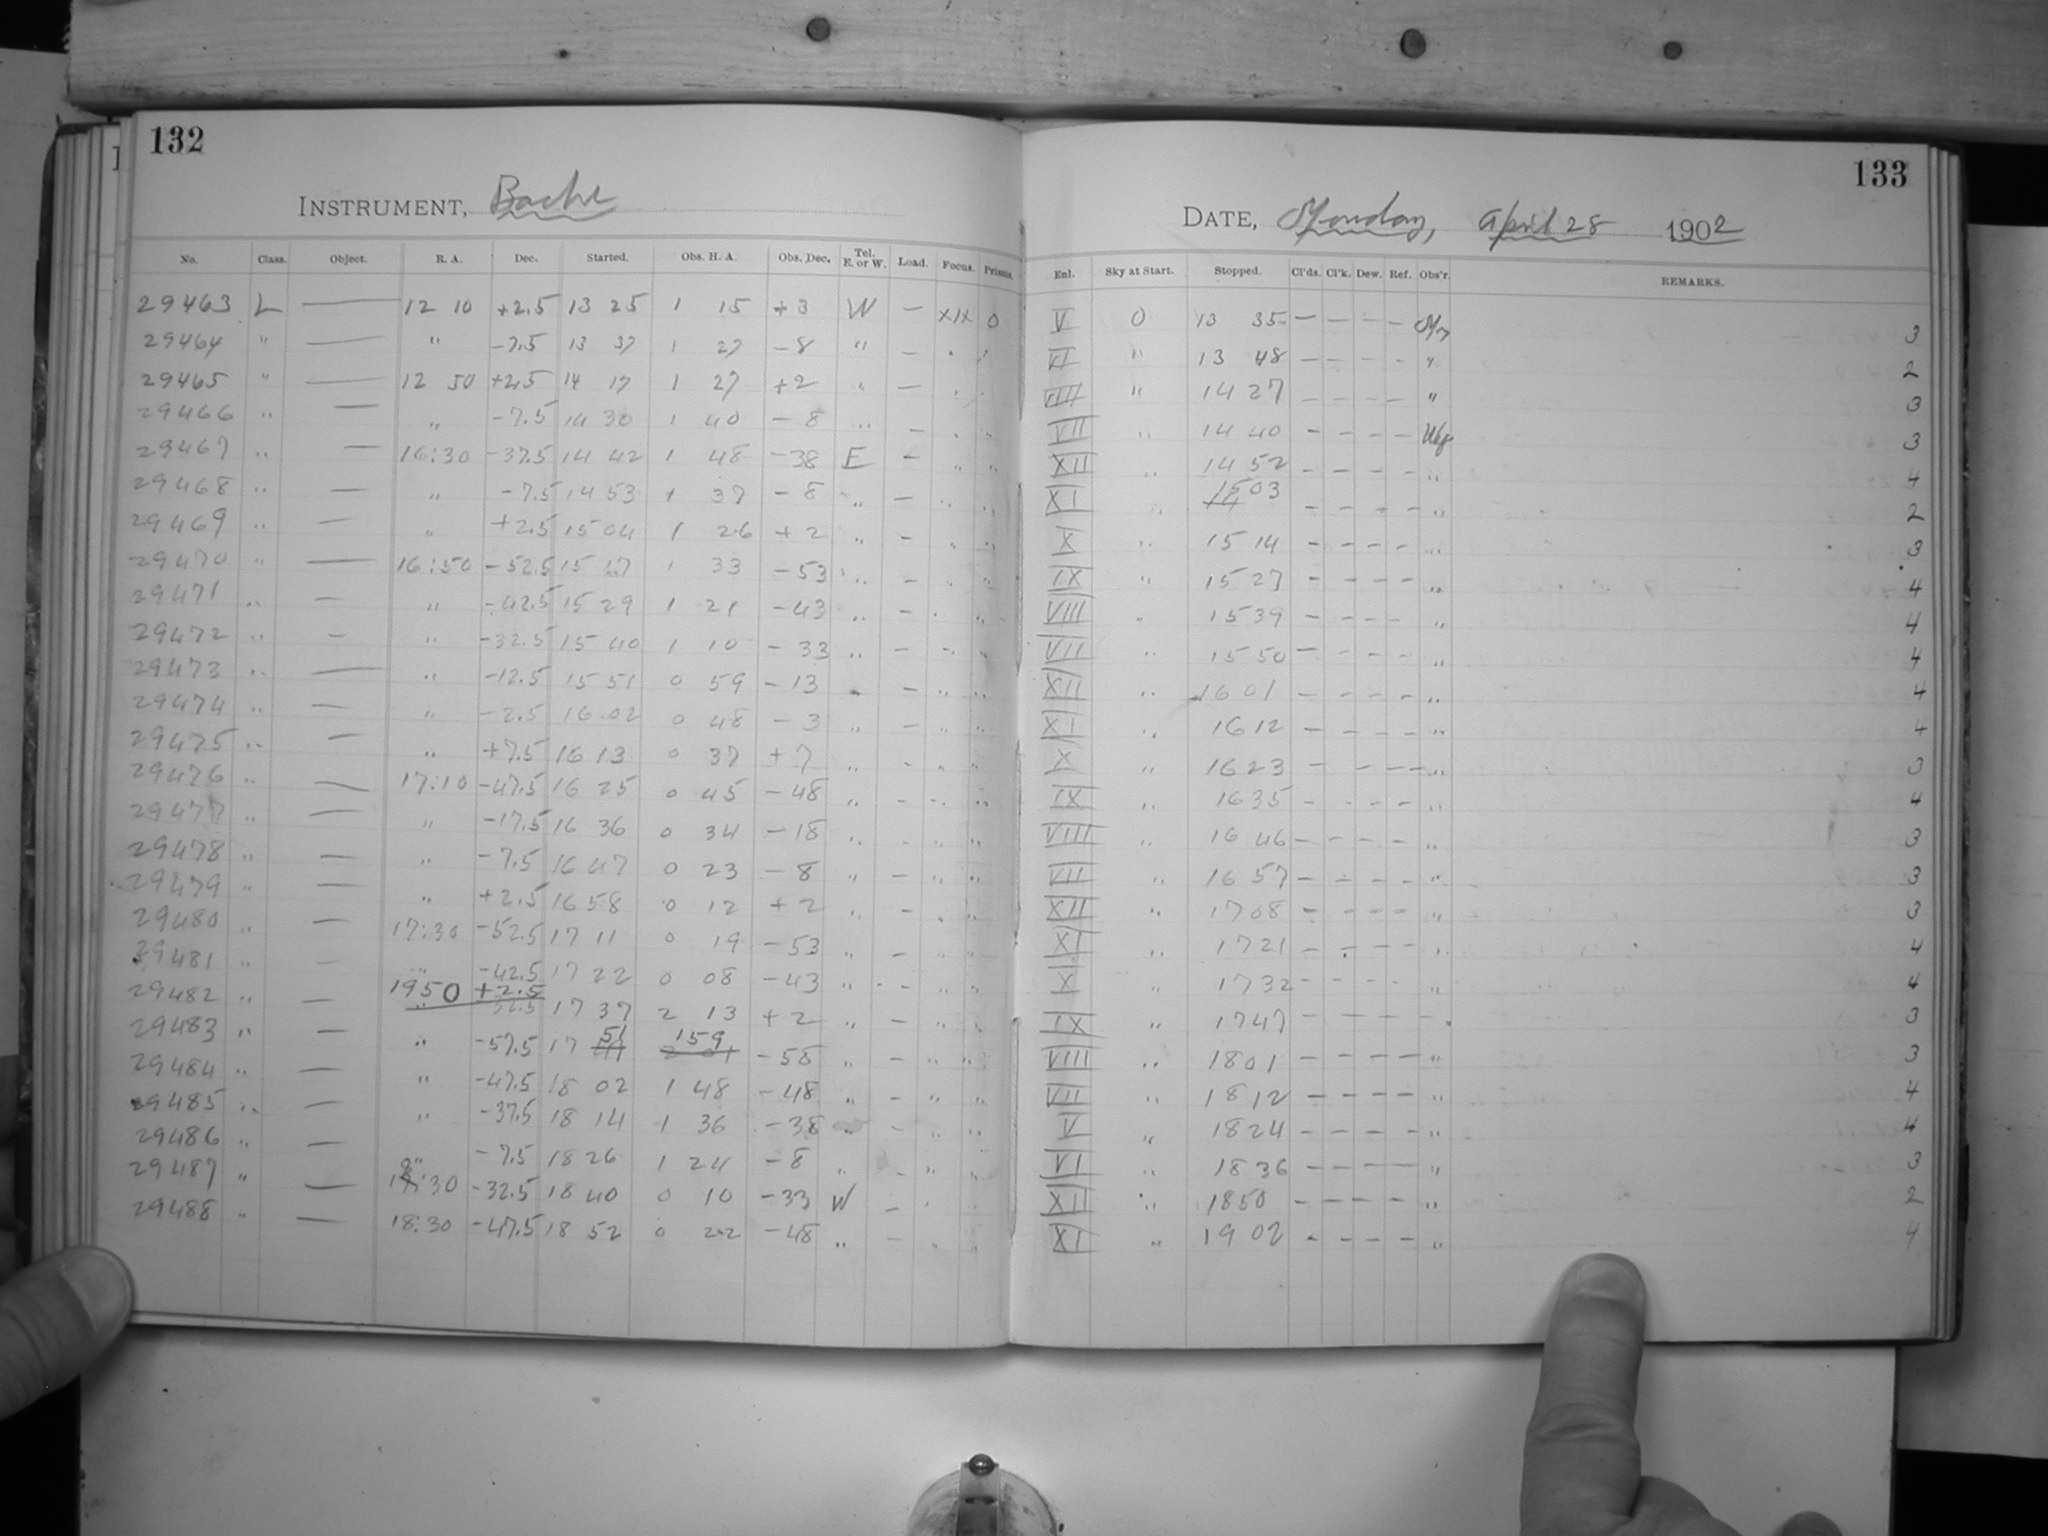 132
INSTRUMENT, Bache
No. Class. Object. R. A. Dec. Started. Obs. H. A. Obs. Dec. Tel. E. or W. Load. Focus. Prisms.
29463 L — 12 10 +2.5 13 25 1 15 +3 W — XIX 0
29464 " — " -7.5 13 37 1 27 -8 " — " "
29465 " — 12 50 +2.5 14 17 1 27 +2 " — " "
29466 " — " -7.5 14 30 1 40 -8 " — " "
29467 " — 16:30 -37.5 14 42 1 48 -38 E — " "
29468 " — " -7.5 14 53 1 37 -8 " — " "
29469 " — " +2.5 15 04 1 26 +2 " — " "
29470 " — 16:50 -52.5 15 17 1 33 -53 " — " "
29471 " — " -42.5 15 29 1 21 -43 " — " "
29472 " — " -32.5 15 40 1 10 -33 " — " "
29473 " — " -12.5 15 51 0 59 -13 " — " "
29474 " — " -2.5 16 02 0 48 -3 " — " "
29475 " — " +7.5 16 13 0 37 +7 " — " "
29476 " — 17:10 -47.5 16 25 0 45 -48 " — " "
29477 " — " -17.5 16 36 0 34 -18 " — " "
29478 " — " -7.5 16 47 0 23 -8 " — " "
29479 " — " +2.5 16 58 0 12 +2 " — " "
29480 " — 17:30 -52.5 17 11 0 19 -53 " — " "
29481 " — " -42.5 17 22 0 08 -43 " — " "
29482 " — 19 50 +2.5 17 37 2 13 +2 " — " "
29483 " — " -57.5 17 51 1 59 -58 " — " "
29484 " — " -47.5 18 02 1 48 -48 " — " "
29485 " — " -37.5 18 14 1 36 -38 " — " "
29486 " — " -7.5 18 26 1 24 -8 " — " "
29487 " — 18:30 -32.5 18 40 0 10 -33 W — " "
29488 " — 18:30 -47.5 18 52 0 22 -48 " — " "
133
DATE, Monday, April 28 1902
Enl. Sky at Start. Stopped. Cl'ds. Cl'k. Dew. Ref. Obs'r. REMARKS.
V 0 13 35 — — — — 3
VI " 13 48 — — — — " 2
VIII " 14 27 — — — — " 3
VII " 14 40 — — — — 3
XII " 14 52 — — — — " 4
XI " 15 03 — — — — " 2
X " 15 14 — — — — " 3
IX " 15 27 — — — — " 4
VIII " 15 39 — — — — " 4
VII " 15 50 — — — — " 4
XII " 16 01 — — — — " 4
XI " 16 12 — — — — " 4
X " 16 23 — — — — " 3
IX " 16 35 — — — — " 4
VIII " 16 46 — — — — " 3
VII " 16 57 — — — — " 3
XII " 17 08 — — — — " 3
XI " 17 21 — — — — " 4
X " 17 32 — — — — " 4
IX " 17 47 — — — — " 3
VIII " 18 01 — — — — " 3
VII " 18 12 — — — — " 4
V " 18 24 — — — — " 4
VI " 18 36 — — — — " 3
XII " 18 50 — — — — " 2
XI " 19 02 — — — — " 4